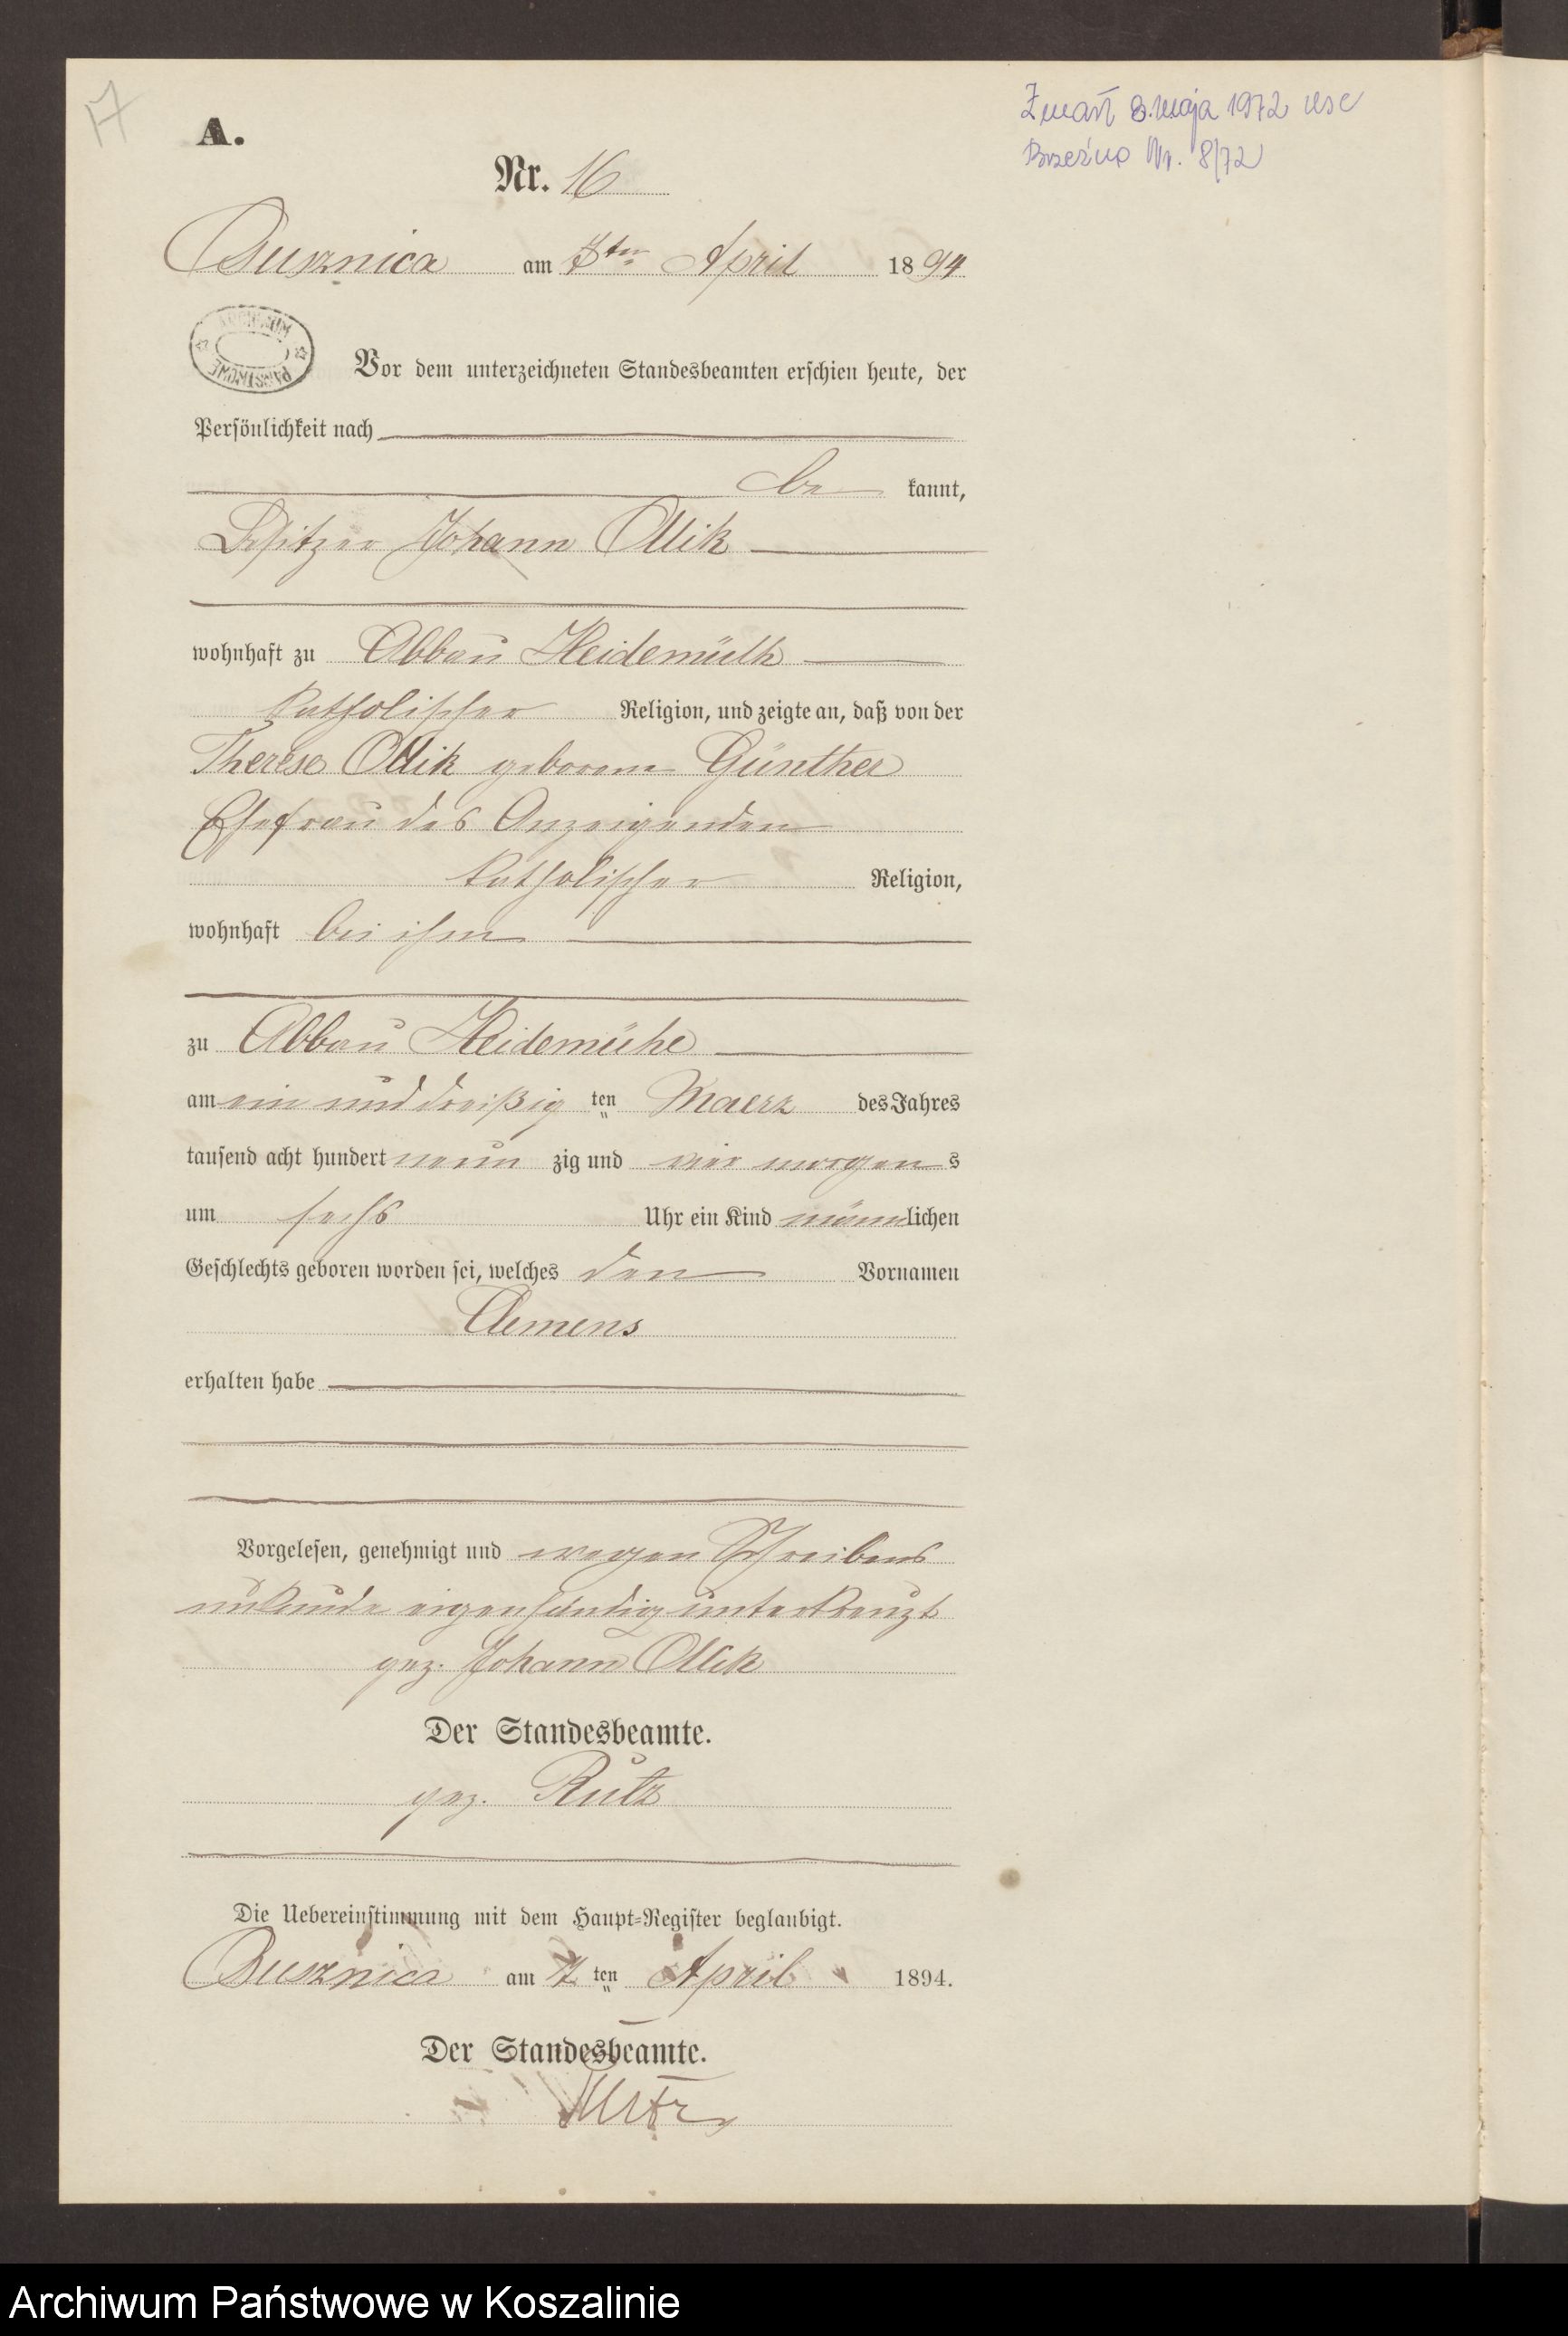 17
Zmarł 8. maja 1972 USC
Brzeźno Nr. 8/72
A.
Nr. 16
Busznica am 7ten April 1894
ARCHIWUM PAŃSTWOWE
Vor dem unterzeichneten Standesbeamten erschien heute, der
Persönlichkeit nach
be kannt,
Besitzer Johann Ollik
wohnhaft zu Abbau Heidemühl
katholischer Religion, und zeigte an, daß von der
Therese Ollik geborene Günther
Ehefrau des Anzeigenden
katholischer Religion,
wohnhaft bei ihm
zu Abbau Heidemühe
am ein und dreißig ten Maerz des Jahres
tausend acht hundert neun zig und vier morgens
um sechs Uhr ein Kind männlichen
Geschlechts geboren worden sei, welches den Vornamen
Clemens
erhalten habe
Vorgelesen, genehmigt und wegen Schreibens
unkunde eigenhändig unterkreuzt
gez. Johann Ollik
Der Standesbeamte.
gez. Rutz
Die Uebereinstimmung mit dem Haupt-Register beglaubigt.
Busznica am 7 ten April 1894.
Der Standesbeamte.
Rutz
Archiwum Państwowe w Koszalinie